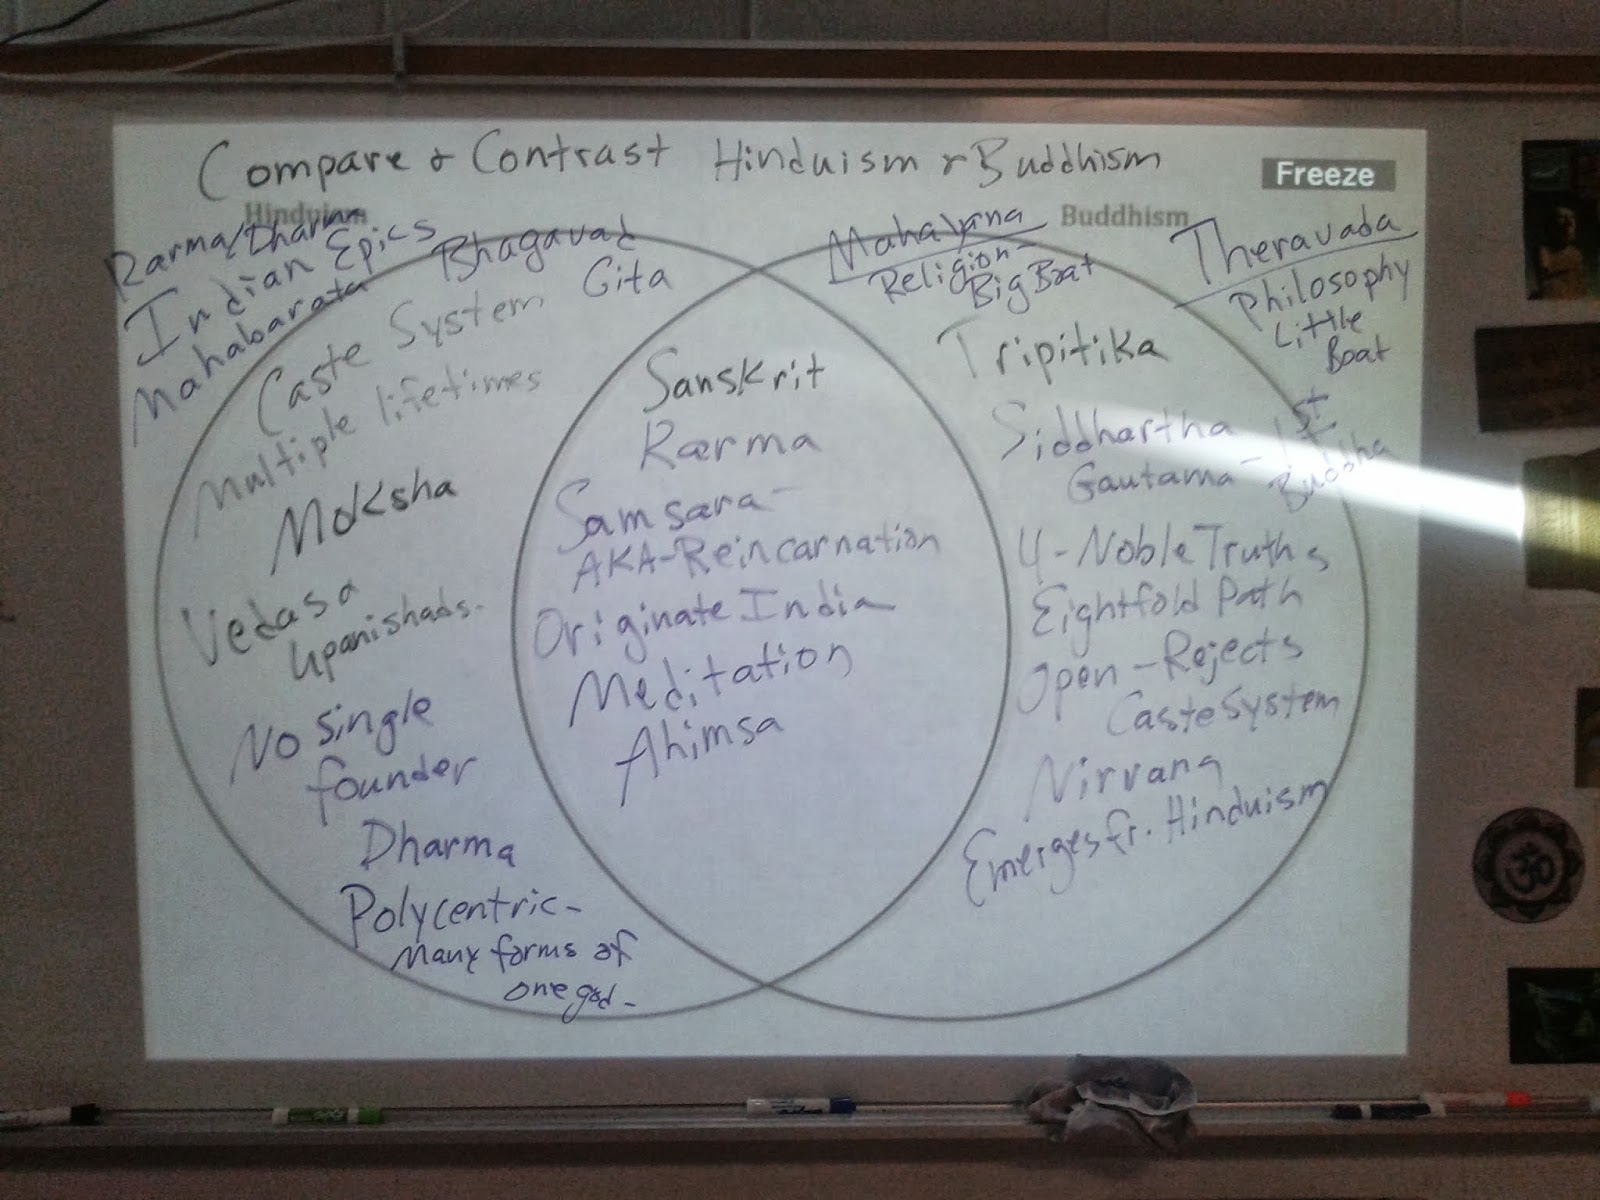 Compare & Contrast Hinduism & Buddhism
Freeze
Hinduism
Karma/Dharma
Indian Epics
Mahabarata
Bhagavad
Gita
Caste System
Multiple lifetimes
Moksha
Vedas &
Upanishads-
No Single
founder
Dharma
Polycentric-
Many forms of
one god-
Sanskrit
Karma
Samsara-
AKA-Reincarnation
Originate India
Meditation
Ahimsa
Buddhism
Mahayana
Religion-
Big Boat
Theravada
Philosophy
Little
Boat
Tripitika
Siddhartha
Gautama - 1st
Buddha
4-Noble Truths
Eightfold Path
Open-Rejects
Caste System
Nirvana
Emerges fr. Hinduism
ॐ